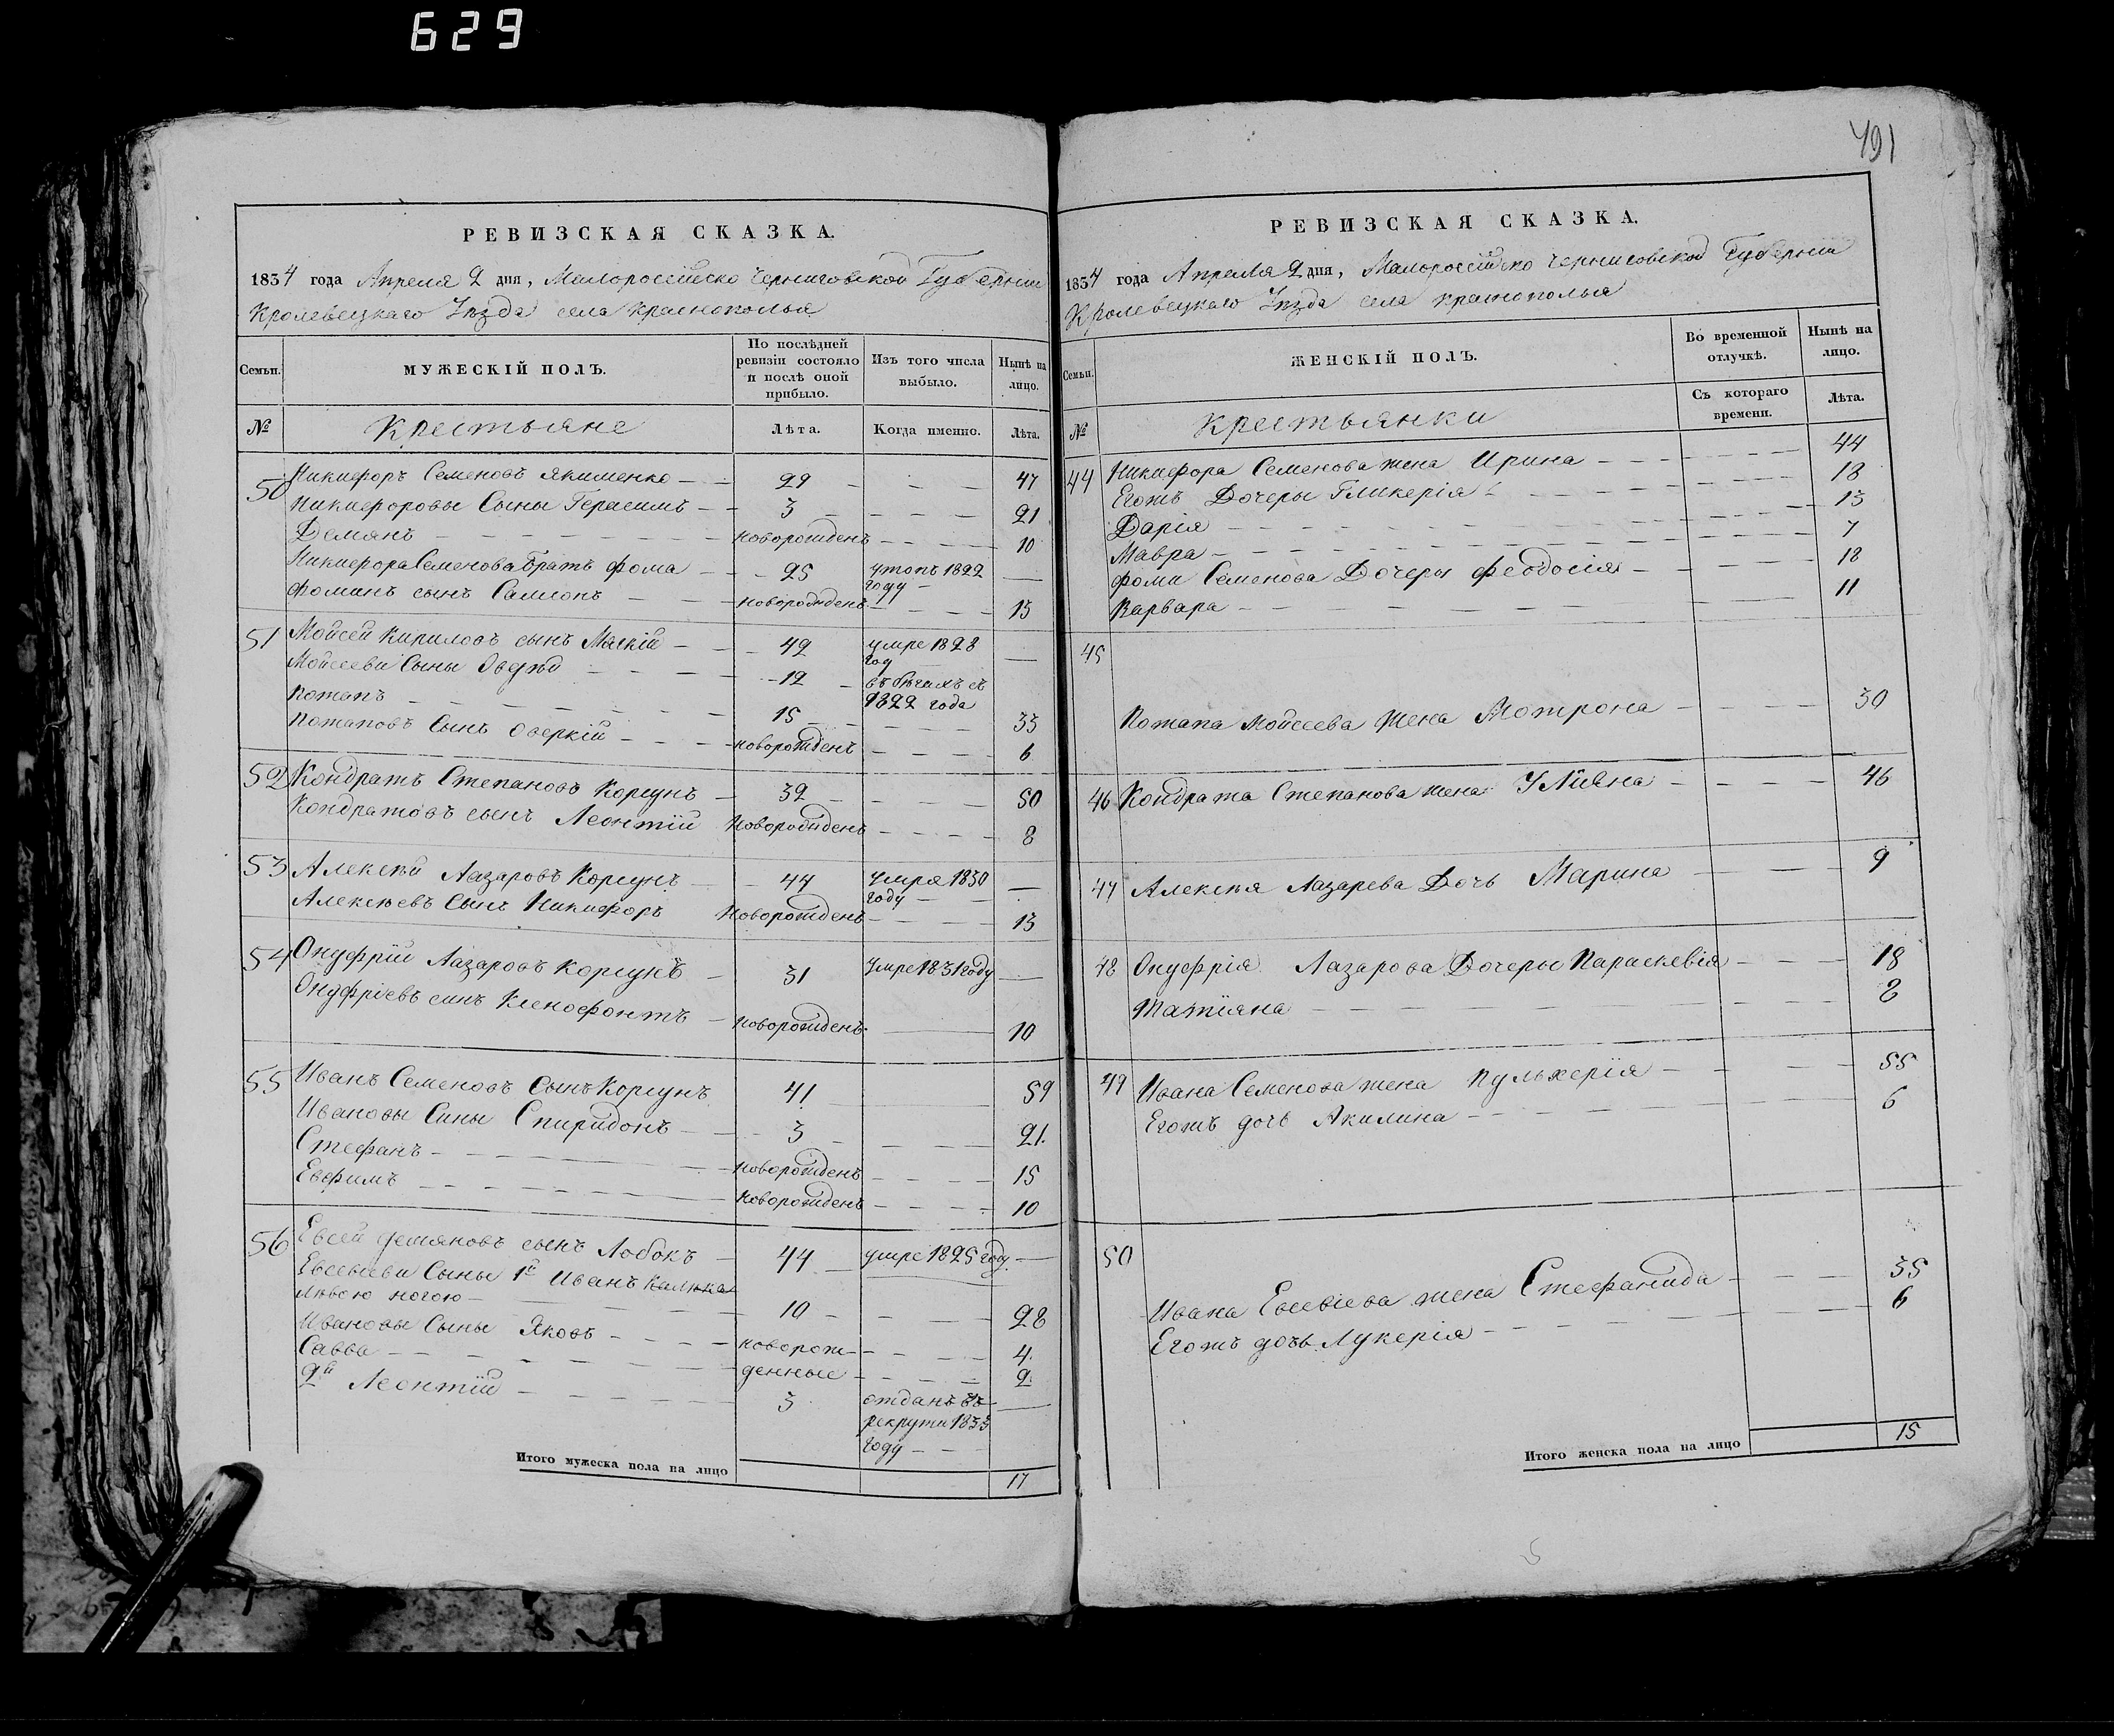 629
491
РЕВИЗСКАЯ СКАЗКА.
1834 года Апреля 2 дня, Малороссийско Черниговской Губернии
Кролевецкаго Уѣзда села Краснополья
Семьи. МУЖЕСКІЙ ПОЛЪ. По послѣдней ревизіи состояло и послѣ оной прибыло. Изъ того числа выбыло. Нынѣ на лицо.
№ Крестьяне Лѣта. Когда именно. Лѣта.
50 Никифоръ Семеновъ Якименко 29 47
Никифоровы Сыны Герасимъ 3 21
Демянъ новорожденъ 10
Никифора Семенова братъ Фома 25 утопъ 1822 году
Фоминъ сынъ Самсонъ новорожденъ 13
51 Мойсей Кириловъ сынъ Мяскій 42 умре 1828 год
Мойсееви Сыны 12 въ бѣгахъ съ 1822 года
Потапъ 15 33
Потаповъ Сынъ Оверкій новорожденъ 6
52 Кондратъ Степановъ Корсунъ 32 50
Кондратовъ сынъ Леонтій новорожденъ 8
53 Алексѣй Лазаровъ Корсунъ 44 умре 1830 году
Алексѣевъ Сынъ Никифоръ новорожденъ 13
54 Онуфрій Лазаровъ Корсунъ 31 умре 1831 году
Онуфріевъ синъ Ксенофонтъ новорожденъ 10
55 Иванъ Семеновъ Сынъ Корсунъ 41 59
Ивановы Сины Спиридонъ 3 21
Стефанъ новорожденъ 15
Евфимъ новорожденъ 10
56 Евсей Демяновъ сынъ Лобокъ 44 умре 1825 году
Евсевіеви Сыны 1й Иванъ калѣка
лѣвою ногою 10 28
Ивановы Сыны Яковъ новорож- 4
Савва денные 2
2й Леонтій 3 отданъ въ рекруты 1833 году
Итого мужеска пола на лицо 17
РЕВИЗСКАЯ СКАЗКА.
1834 года Апреля 2 дня, Малороссийско Черниговской Губернии
Кролевецкаго Уѣзда села Краснополья
Семьи. ЖЕНСКІЙ ПОЛЪ. Во временной отлучкѣ. Нынѣ на лицо.
№ Крестьянки Съ котораго времени. Лѣта.
44 Никифора Семенова жена Ирина 44
Егожъ Дочеры Гликерія 18
Дарія 13
Мавра 7
Фоми Семенова Дочеры Феодосія 18
Варвара 11
45
Потапа Мойсеева жена Мотрона 30
46 Кондрата Степанова жена Уліяна 46
47 Алексѣя Лазарева Дочь Марина 9
48 Онуфрія Лазарова Дочеры Параскевія 18
Татіяна 8
49 Ивана Семенова жена Пульхерія 55
Егожъ дочь Акилина 6
50
Ивана Евсевіева жена Стефанида 35
Егожъ дочь Лукерія 6
Итого женска пола на лицо 15